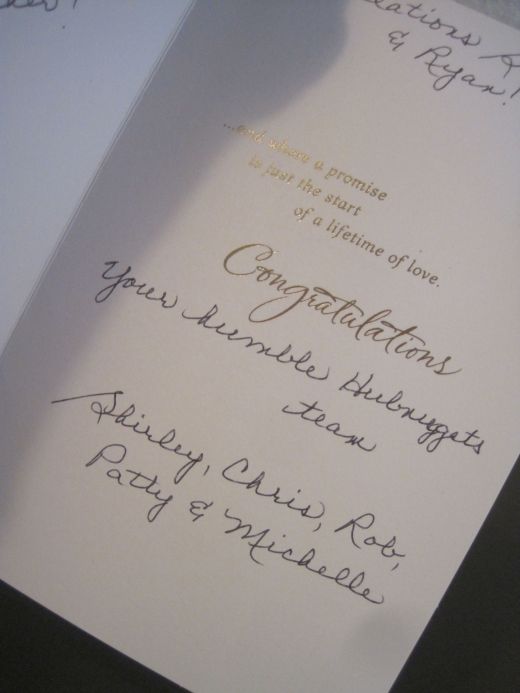 & Ryan!
...and where a promise
is just the start
of a lifetime of love.
Congratulations
Your humble Hubnuggets
team
Shirley, Chris, Rob,
Patty & Michelle